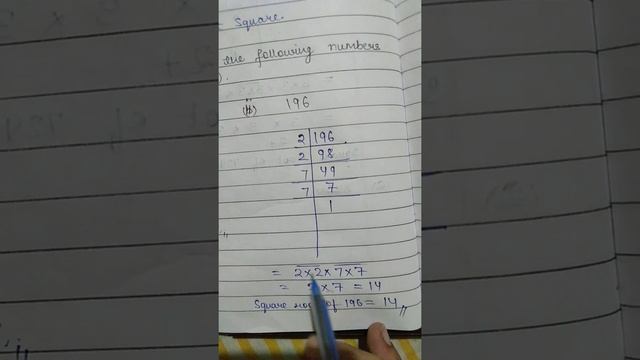 Square.
the following numbers
).
(ii) 196
2 | 196
2 | 98
7 | 49
7 | 7
1
= 2 × 2 × 7 × 7
= 2 × 7 = 14
Square root of 196 = 14,,